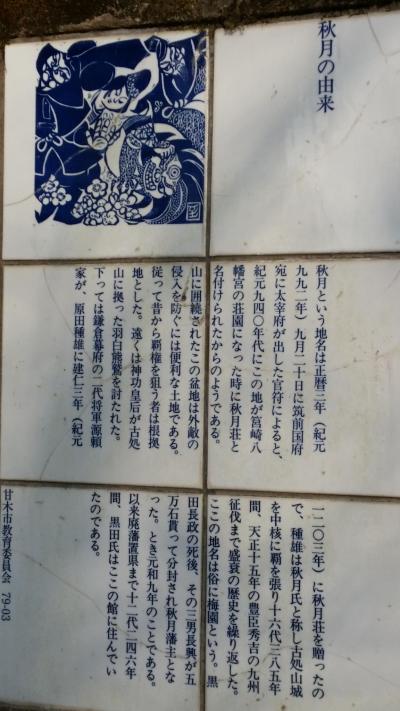 秋月の由来
秋月という地名は正暦三年（紀元
九九二年）九月二十日に筑前国府
宛に太宰府が出した官符によると、
紀元九四〇年代にこの地が筥崎八
幡宮の荘園になった時に秋月荘と
名付けられたからのようである。
山に囲繞されたこの盆地は外敵の
侵入を防ぐには便利な土地である。
従って昔から覇権を狙う者は根拠
地とした。遠くは神功皇后が古処
山に拠った羽白熊鷲を討たれた。
下っては鎌倉幕府の二代将軍源頼
家が、原田種雄に建仁三年（紀元
一二〇三年）に秋月荘を贈ったの
で、種雄は秋月氏と称し古処山城
を中核に覇を張り十六代三八五年
間、天正十五年の豊臣秀吉の九州
征伐まで盛衰の歴史を繰り返した。
ここの地名は俗に梅園という。黒
田長政の死後、その三男長興が五
万石貰って分封され秋月藩主とな
った。とき元和九年のことである。
以来廃藩置県まで十二代二四六年
間、黒田氏はここの館に住んでい
たのである。
甘木市教育委員会 79-03